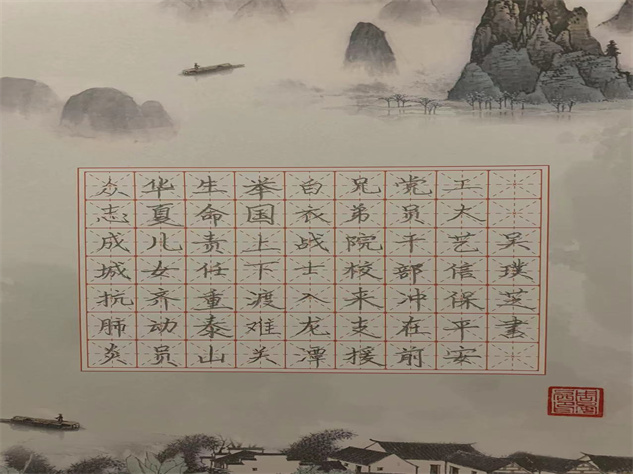 众志成城抗肺炎
华夏儿女齐动员
生命责任重泰山
举国上下渡难关
白衣战士入龙潭
兄弟院校来支援
党员干部冲在前
工大艺信保平安
吴璞芝書